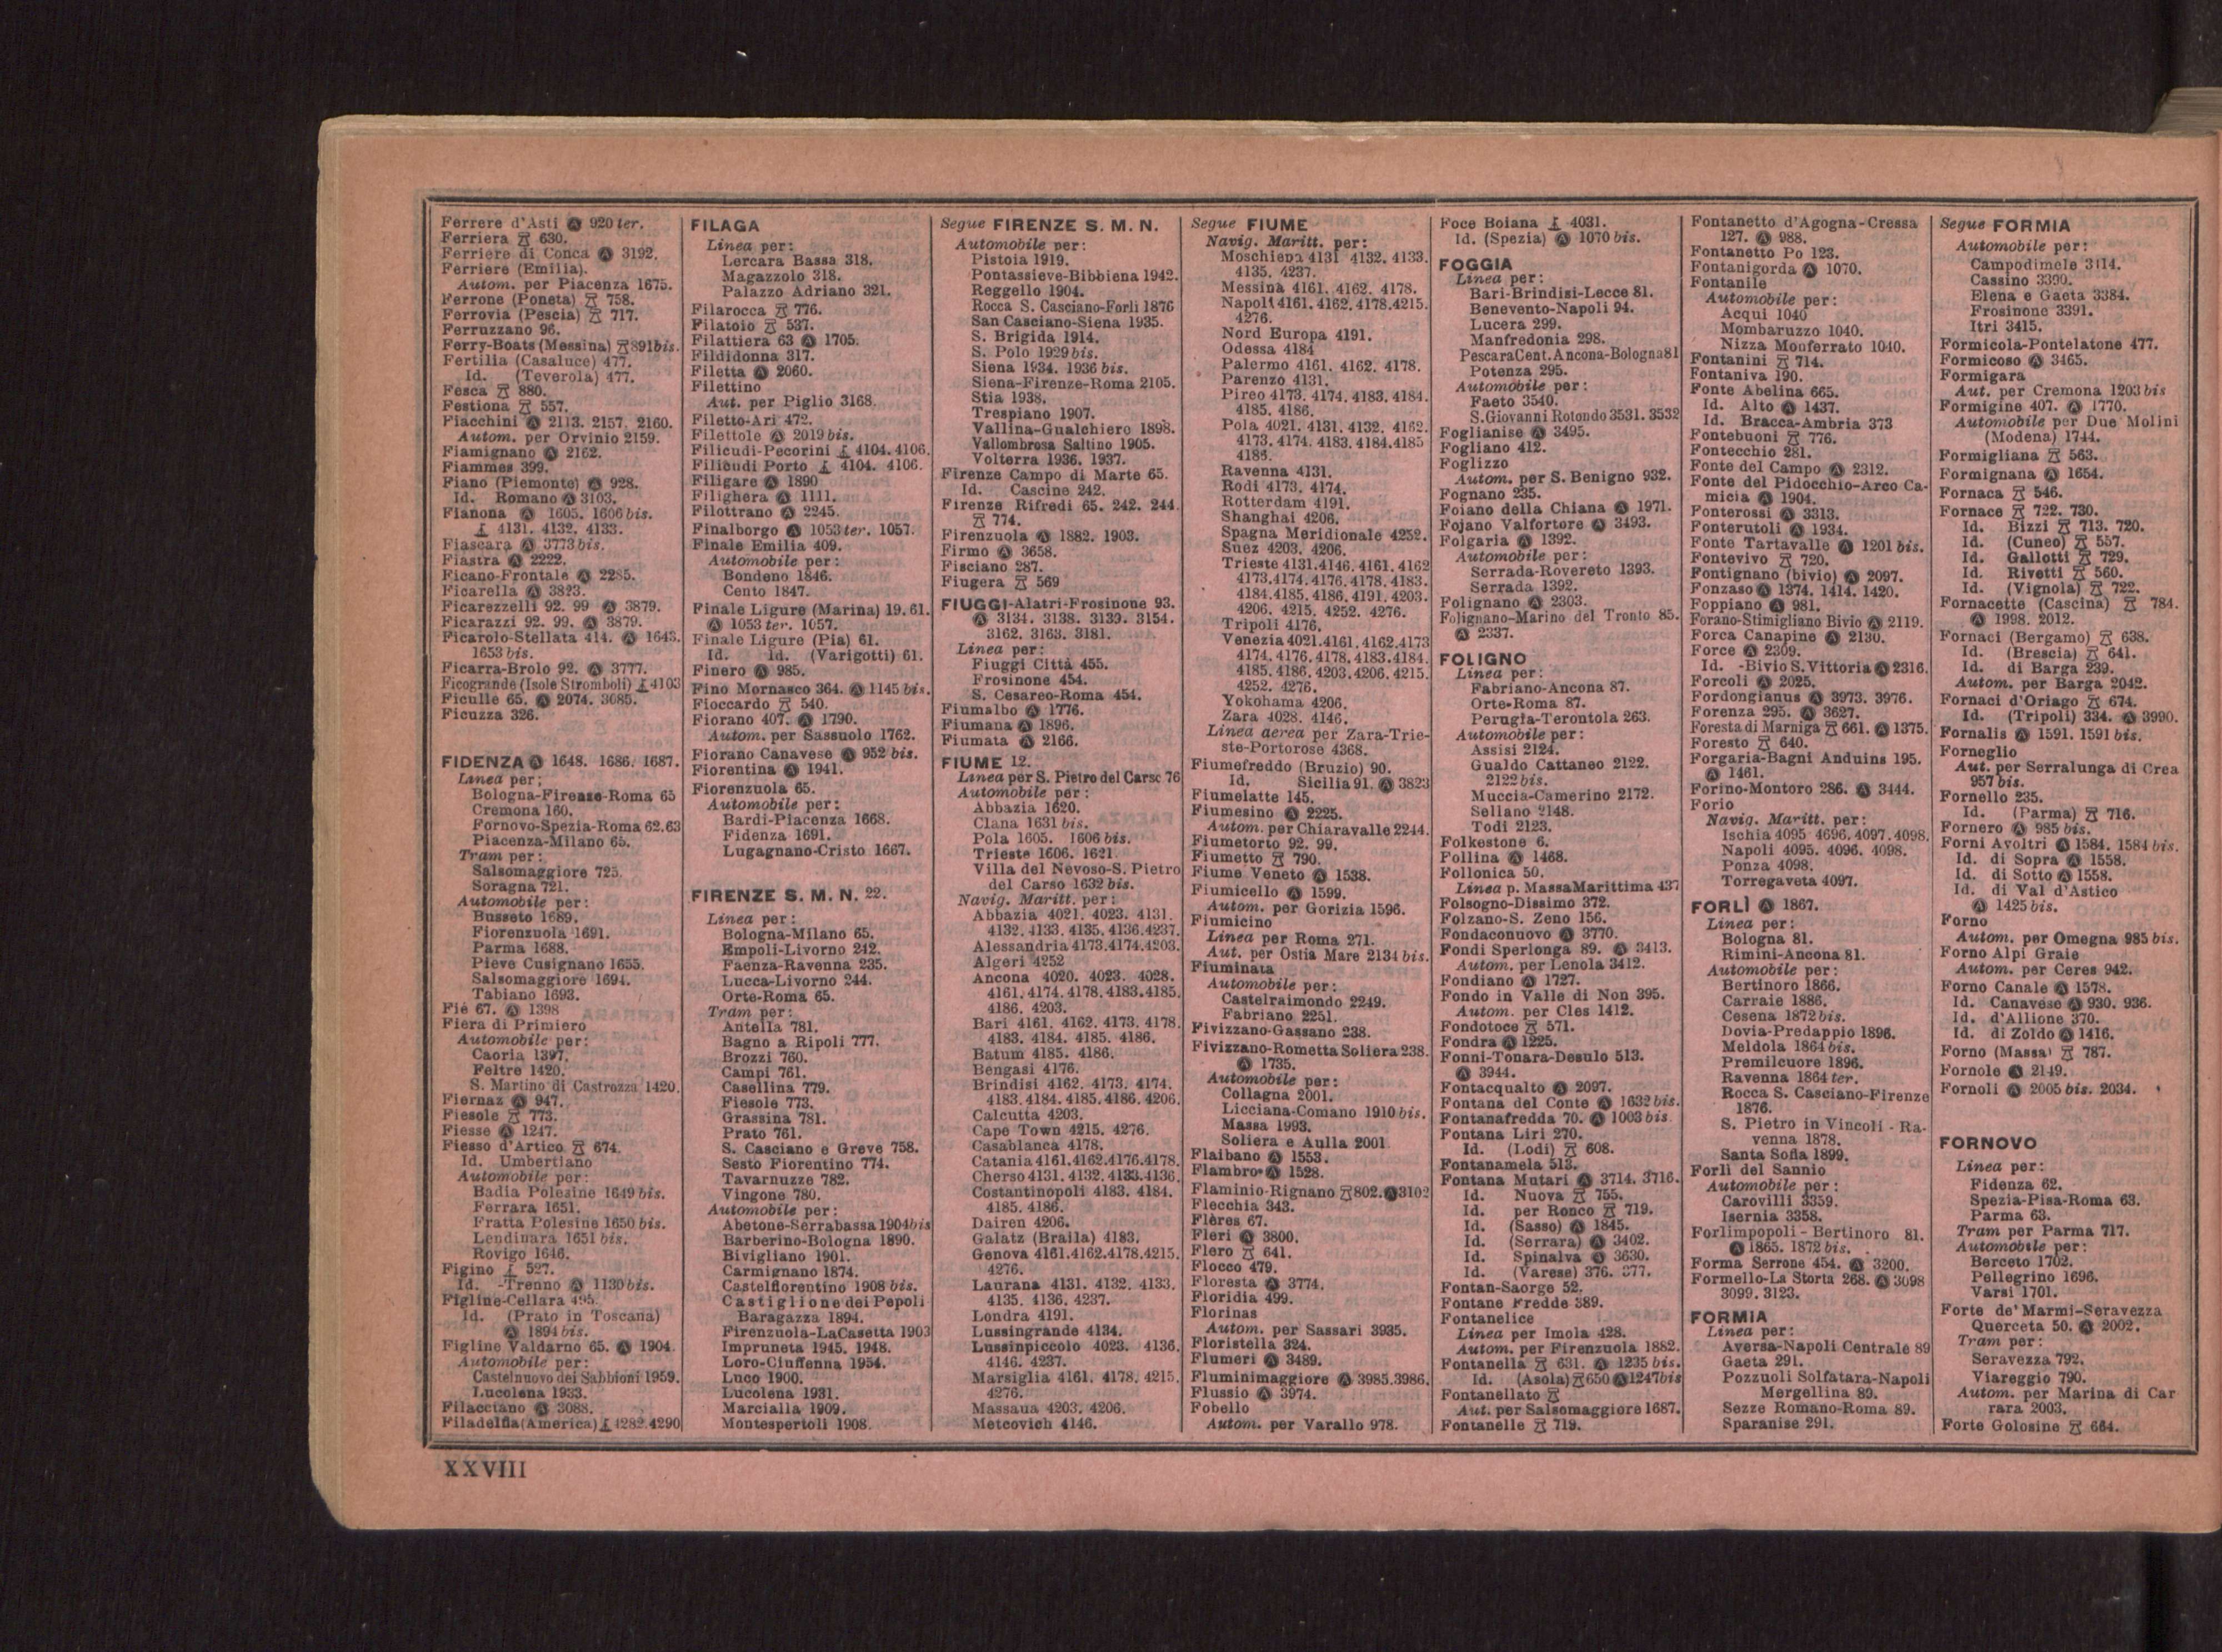 Ferrere d'Asti Ⓐ 920 ter.
Ferriera 630.
Ferriere di Conca Ⓐ 3192.
Ferriere (Emilia).
Autom. per Piacenza 1675.
Ferrone (Poneta) 758.
Ferrovia (Pescia) 717.
Ferruzzano 96.
Ferry-Boats (Messina) 891bis.
Fertilia (Casaluce) 477.
Id. (Teverola) 477.
Fesca 880.
Festiona 557.
Fiacchini Ⓐ 2113. 2157. 2160.
Autom. per Orvinio 2159.
Fiamignano Ⓐ 2162.
Fiammes 399.
Fiano (Piemonte) Ⓐ 928.
Id. Romano Ⓐ 3103.
Fianona Ⓐ 1605. 1606 bis.
4131. 4132. 4133.
Fiascara Ⓐ 3773 bis.
Fiastra Ⓐ 2222.
Ficano-Frontale Ⓐ 2285.
Ficarella Ⓐ 3823.
Ficarezzelli 92. 99 Ⓐ 3879.
Ficarazzi 92. 99. Ⓐ 3879.
Ficarolo-Stellata 414. Ⓐ 1643.
1653 bis.
Ficarra-Brolo 92. Ⓐ 3777.
Ficogrande (Isole Stromboli) 4103
Ficulle 65. Ⓐ 2074. 3085.
Ficuzza 326.
FIDENZA Ⓐ 1648. 1686. 1687.
Linea per:
Bologna-Firenze-Roma 65
Cremona 160.
Fornovo-Spezia-Roma 62.63
Piacenza-Milano 65.
Tram per:
Salsomaggiore 725.
Soragna 721.
Automobile per:
Busseto 1689.
Fiorenzuola 1691.
Parma 1688.
Pieve Cusignano 1655.
Salsomaggiore 1694.
Tabiano 1693.
Fié 67. Ⓐ 1398
Fiera di Primiero
Automobile per:
Caoria 1397.
Feltre 1420.
S. Martino di Castrozza 1420.
Fiernaz Ⓐ 947.
Fiesole 773.
Fiesse Ⓐ 1247.
Fiesso d'Artico 674.
Id. Umbertiano
Automobile per:
Badia Polesine 1649 bis.
Ferrara 1651.
Fratta Polesine 1650 bis.
Lendinara 1651 bis.
Rovigo 1646.
Figino 527.
Id. -Trenno Ⓐ 1130 bis.
Figline-Cellara 495.
Id. (Prato in Toscana)
Ⓐ 1894 bis.
Figline Valdarno 65. Ⓐ 1904.
Automobile per:
Castelnuovo dei Sabbioni 1959.
Lucolena 1933.
Filacciano Ⓐ 3088.
Filadelfia (America) 4282.4290
FILAGA
Linea per:
Lercara Bassa 318.
Magazzolo 318.
Palazzo Adriano 321.
Filarocca 776.
Filatoio 537.
Filattiera 63 Ⓐ 1705.
Fildidonna 317.
Filetta Ⓐ 2060.
Filettino
Aut. per Piglio 3168.
Filetto-Ari 472.
Filettole Ⓐ 2019 bis.
Filicudi-Pecorini 4104. 4106.
Filicudi Porto 4104. 4106.
Filigare Ⓐ 1890
Filighera Ⓐ 1111.
Filottrano Ⓐ 2245.
Finalborgo Ⓐ 1053 ter. 1057.
Finale Emilia 409.
Automobile per:
Bondeno 1846.
Cento 1847.
Finale Ligure (Marina) 19. 61.
Ⓐ 1053 ter. 1057.
Finale Ligure (Pia) 61.
Id. Id. (Varigotti) 61.
Finero Ⓐ 985.
Fino Mornasco 364. Ⓐ 1145 bis.
Fioccardo 540.
Fiorano 407. Ⓐ 1790.
Autom. per Sassuolo 1762.
Fiorano Canavese Ⓐ 952 bis.
Fiorentina Ⓐ 1941.
Fiorenzuola 65.
Automobile per:
Bardi-Piacenza 1668.
Fidenza 1691.
Lugagnano-Cristo 1667.
FIRENZE S. M. N. 22.
Linea per:
Bologna-Milano 65.
Empoli-Livorno 242.
Faenza-Ravenna 235.
Lucca-Livorno 244.
Orte-Roma 65.
Tram per:
Antella 781.
Bagno a Ripoli 777.
Brozzi 760.
Campi 761.
Casellina 779.
Fiesole 773.
Grassina 781.
Prato 761.
S. Casciano e Greve 758.
Sesto Fiorentino 774.
Tavarnuzze 782.
Vingone 780.
Automobile per:
Abetone-Serrabassa 1904bis
Barberino-Bologna 1890.
Bivigliano 1901.
Carmignano 1874.
Castelfiorentino 1908 bis.
Castiglione dei Pepoli
Baragazza 1894.
Firenzuola-LaCasetta 1903
Impruneta 1945. 1948.
Loro-Ciuffenna 1954.
Luco 1900.
Lucolena 1931.
Marcialla 1909.
Montespertoli 1908.
Segue FIRENZE S. M. N.
Automobile per:
Pistoia 1919.
Pontassieve-Bibbiena 1942.
Reggello 1904.
Rocca S. Casciano-Forlì 1876
San Casciano-Siena 1935.
S. Brigida 1914.
S. Polo 1929 bis.
Siena 1934. 1936 bis.
Siena-Firenze-Roma 2105.
Stia 1938.
Trespiano 1907.
Vallina-Gualchiero 1898.
Vallombrosa Saltino 1905.
Volterra 1936. 1937.
Firenze Campo di Marte 65.
Id. Cascine 242.
Firenze Rifredi 65. 242. 244.
774.
Firenzuola Ⓐ 1882. 1903.
Firmo Ⓐ 3658.
Fisciano 287.
Fiugera 569
FIUGGI-Alatri-Frosinone 93.
Ⓐ 3134. 3138. 3139. 3154.
3162. 3163. 3181.
Linea per:
Fiuggi Città 455.
Frosinone 454.
S. Cesareo-Roma 454.
Fiumalbo Ⓐ 1776.
Fiumana Ⓐ 1896.
Fiumata Ⓐ 2166.
FIUME 12.
Linea per S. Pietro del Carso 76
Automobile per:
Abbazia 1620.
Clana 1631 bis.
Pola 1605. 1606 bis.
Trieste 1606. 1621.
Villa del Nevoso-S. Pietro
del Carso 1632 bis.
Navig. Maritt. per:
Abbazia 4021. 4023. 4131.
4132. 4133. 4135. 4136.4237.
Alessandria 4173.4174.4203.
Algeri 4252
Ancona 4020. 4023. 4028.
4161. 4174. 4178. 4183.4185.
4186. 4203.
Bari 4161. 4162. 4173. 4178.
4183. 4184. 4185. 4186.
Batum 4185. 4186.
Bengasi 4176.
Brindisi 4162. 4173. 4174.
4183. 4184. 4185.4186. 4206.
Calcutta 4203.
Cape Town 4215. 4276.
Casablanca 4178.
Catania 4161.4162.4176.4178.
Cherso 4131. 4132. 4133.4136.
Costantinopoli 4183. 4184.
4185. 4186.
Dairen 4206.
Galatz (Braila) 4183.
Genova 4161.4162.4178.4215.
4276.
Laurana 4131. 4132. 4133.
4135. 4136. 4237.
Londra 4191.
Lussingrande 4134.
Lussinpiccolo 4023. 4136.
4146. 4237.
Marsiglia 4161. 4178. 4215.
4276.
Massaua 4203. 4206.
Metcovich 4146.
Segue FIUME
Navig. Maritt. per:
Moschiena 4131 4132. 4133.
4135. 4237.
Messina 4161. 4162. 4178.
Napoli 4161. 4162. 4178.4215.
4276.
Nord Europa 4191.
Odessa 4184
Palermo 4161. 4162. 4178.
Parenzo 4131.
Pireo 4173. 4174. 4183. 4184.
4185. 4186.
Pola 4021. 4131. 4132. 4162.
4173. 4174. 4183. 4184.4185
4186.
Ravenna 4131.
Rodi 4173. 4174.
Rotterdam 4191.
Shanghai 4206.
Spagna Meridionale 4252.
Suez 4203. 4206.
Trieste 4131.4146. 4161. 4162
4173.4174. 4176. 4178. 4183.
4184.4185. 4186. 4191. 4203.
4206. 4215. 4252. 4276.
Tripoli 4176.
Venezia 4021.4161. 4162.4173
4174. 4176.4178. 4183.4184.
4185. 4186. 4203.4206. 4215.
4252. 4276.
Yokohama 4206.
Zara 4028. 4146.
Linea aerea per Zara-Trie-
ste-Portorose 4368.
Fiumefreddo (Bruzio) 90.
Id. Sicilia 91. Ⓐ 3823
Fiumelatte 145.
Fiumesino Ⓐ 2225.
Autom. per Chiaravalle 2244.
Fiumetorto 92. 99.
Fiumetto 790.
Fiume Veneto Ⓐ 1538.
Fiumicello Ⓐ 1599.
Autom. per Gorizia 1596.
Fiumicino
Linea per Roma 271.
Aut. per Ostia Mare 2134 bis.
Fiuminata
Automobile per:
Castelraimondo 2249.
Fabriano 2251.
Fivizzano-Gassano 238.
Fivizzano-Rometta Soliera 238.
Ⓐ 1735.
Automobile per:
Collagna 2001.
Licciana-Comano 1910 bis.
Massa 1993.
Soliera e Aulla 2001.
Flaibano Ⓐ 1553.
Flambro Ⓐ 1528.
Flaminio-Rignano 802. Ⓐ 3102
Flecchia 343.
Flères 67.
Fleri Ⓐ 3800.
Flero 641.
Flocco 479.
Floresta Ⓐ 3774.
Floridia 499.
Florinas
Autom. per Sassari 3935.
Floristella 324.
Flumeri Ⓐ 3489.
Fluminimaggiore Ⓐ 3985.3986.
Flussio Ⓐ 3974.
Fobello
Autom. per Varallo 978.
Foce Boiana 4031.
Id. (Spezia) Ⓐ 1070 bis.
FOGGIA
Linea per:
Bari-Brindisi-Lecce 81.
Benevento-Napoli 94.
Lucera 299.
Manfredonia 298.
PescaraCent.Ancona-Bologna81
Potenza 295.
Automobile per:
Faeto 3540.
S.Giovanni Rotondo 3531. 3532
Foglianise Ⓐ 3495.
Fogliano 412.
Foglizzo
Autom. per S. Benigno 932.
Fognano 235.
Foiano della Chiana Ⓐ 1971.
Fojano Valfortore Ⓐ 3493.
Folgaria Ⓐ 1392.
Automobile per:
Serrada-Rovereto 1393.
Serrada 1392.
Folignano Ⓐ 2303.
Folignano-Marino del Tronto 85.
Ⓐ 2337.
FOLIGNO
Linea per:
Fabriano-Ancona 87.
Orte-Roma 87.
Perugia-Terontola 263.
Automobile per:
Assisi 2124.
Gualdo Cattaneo 2122.
2122 bis.
Muccia-Camerino 2172.
Sellano 2148.
Todi 2123.
Folkestone 6.
Follina Ⓐ 1468.
Follonica 50.
Linea p. MassaMarittima 437
Folsogno-Dissimo 372.
Folzano-S. Zeno 156.
Fondaconuovo Ⓐ 3770.
Fondi Sperlonga 89. Ⓐ 3413.
Autom. per Lenola 3412.
Fondiano Ⓐ 1727.
Fondo in Valle di Non 395.
Autom. per Cles 1412.
Fondotoce 571.
Fondra Ⓐ 1225.
Fonni-Tonara-Desulo 513.
Ⓐ 3944.
Fontacqualto Ⓐ 2097.
Fontana del Conte Ⓐ 1632 bis.
Fontanafredda 70. Ⓐ 1003 bis
Fontana Liri 270.
Id. (Lodi) 608.
Fontanamela 513.
Fontana Mutari Ⓐ 3714. 3716.
Id. Nuova 755.
Id. per Ronco 719.
Id. (Sasso) Ⓐ 1845.
Id. (Serrara) Ⓐ 3402.
Id. Spinalva Ⓐ 3630.
Id. (Varese) 376. 377.
Fontan-Saorge 52.
Fontane Fredde 389.
Fontanelice
Linea per Imola 428.
Autom. per Firenzuola 1882.
Fontanella 631. Ⓐ 1235 bis.
Id. (Asola) 650 Ⓐ 1247bis
Fontanellato
Aut. per Salsomaggiore 1687.
Fontanelle 719.
Fontanetto d'Agogna-Cressa
127. Ⓐ 988.
Fontanetto Po 123.
Fontanigorda Ⓐ 1070.
Fontanile
Automobile per:
Acqui 1040
Mombaruzzo 1040.
Nizza Monferrato 1040.
Fontanini 714.
Fontaniva 190.
Fonte Abelina 665.
Id. Alto Ⓐ 1437.
Id. Bracca-Ambria 373
Fontebuoni 776.
Fontecchio 281.
Fonte del Campo Ⓐ 2312.
Fonte del Pidocchio-Arco Ca-
micia Ⓐ 1904.
Fonterossi Ⓐ 3313.
Fonterutoli Ⓐ 1934.
Fonte Tartavalle Ⓐ 1201 bis.
Fontevivo 720.
Fontignano (bivio) Ⓐ 2097.
Fonzaso Ⓐ 1374. 1414. 1420.
Foppiano Ⓐ 981.
Forano-Stimigliano Bivio Ⓐ 2119.
Forca Canapine Ⓐ 2130.
Force Ⓐ 2309.
Id. -Bivio S. Vittoria Ⓐ 2316.
Forcoli Ⓐ 2025.
Fordongianus Ⓐ 3973. 3976.
Forenza 295. Ⓐ 3627.
Foresta di Marniga 661. Ⓐ 1375.
Foresto 640.
Forgaria-Bagni Anduins 195.
Ⓐ 1461.
Forino-Montoro 286. Ⓐ 3444.
Forio
Navig. Maritt. per:
Ischia 4095 4696. 4097. 4098.
Napoli 4095. 4096. 4098.
Ponza 4098.
Torregaveta 4097.
FORLÌ Ⓐ 1867.
Linea per:
Bologna 81.
Rimini-Ancona 81.
Automobile per:
Bertinoro 1866.
Carraie 1886.
Cesena 1872 bis.
Dovia-Predappio 1896.
Meldola 1864 bis.
Premilcuore 1896.
Ravenna 1864 ter.
Rocca S. Casciano-Firenze
1876.
S. Pietro in Vincoli - Ra-
venna 1878.
Santa Sofia 1899.
Forlì del Sannio
Automobile per:
Carovilli 3359.
Isernia 3358.
Forlimpopoli - Bertinoro 81.
Ⓐ 1865. 1872 bis.
Forma Serrone 454. Ⓐ 3200.
Formello-La Storta 268. Ⓐ 3098
3099. 3123.
FORMIA
Linea per:
Aversa-Napoli Centrale 89
Gaeta 291.
Pozzuoli Solfatara-Napoli
Mergellina 89.
Sezze Romano-Roma 89.
Sparanise 291.
Segue FORMIA
Automobile per:
Campodimele 3114.
Cassino 3390.
Elena e Gaeta 3384.
Frosinone 3391.
Itri 3415.
Formicola-Pontelatone 477.
Formicoso Ⓐ 3465.
Formigara
Aut. per Cremona 1203 bis
Formigine 407. Ⓐ 1770.
Automobile per Due Molini
(Modena) 1744.
Formigliana 563.
Formignana Ⓐ 1654.
Fornaca 546.
Fornace 722. 730.
Id. Bizzi 713. 720.
Id. (Cuneo) 557.
Id. Gallotti 729.
Id. Rivetti 560.
Id. (Vignola) 722.
Fornacette (Cascina) 784.
Ⓐ 1998. 2012.
Fornaci (Bergamo) 638.
Id. (Brescia) 641.
Id. di Barga 239.
Autom. per Barga 2042.
Fornaci d'Oriago 674.
Id. (Tripoli) 334. Ⓐ 3990.
Fornalis Ⓐ 1591. 1591 bis.
Forneglio
Aut. per Serralunga di Crea
957 bis.
Fornello 235.
Id. (Parma) 716.
Fornero Ⓐ 985 bis.
Forni Avoltri Ⓐ 1584. 1584 bis.
Id. di Sopra Ⓐ 1558.
Id. di Sotto Ⓐ 1558.
Id. di Val d'Astico
Ⓐ 1425 bis.
Forno
Autom. per Omegna 985 bis.
Forno Alpi Graie
Autom. per Ceres 942.
Forno Canale Ⓐ 1578.
Id. Canavese Ⓐ 930. 936.
Id. d'Allione 370.
Id. di Zoldo Ⓐ 1416.
Forno (Massa) 787.
Fornole Ⓐ 2149.
Fornoli Ⓐ 2005 bis. 2034.
FORNOVO
Linea per:
Fidenza 62.
Spezia-Pisa-Roma 63.
Parma 63.
Tram per Parma 717.
Automobile per:
Berceto 1702.
Pellegrino 1696.
Varsi 1701.
Forte de' Marmi-Seravezza
Querceta 50. Ⓐ 2002.
Tram per:
Seravezza 792.
Viareggio 790.
Autom. per Marina di Car
rara 2003.
Forte Golosine 664.
XXVIII